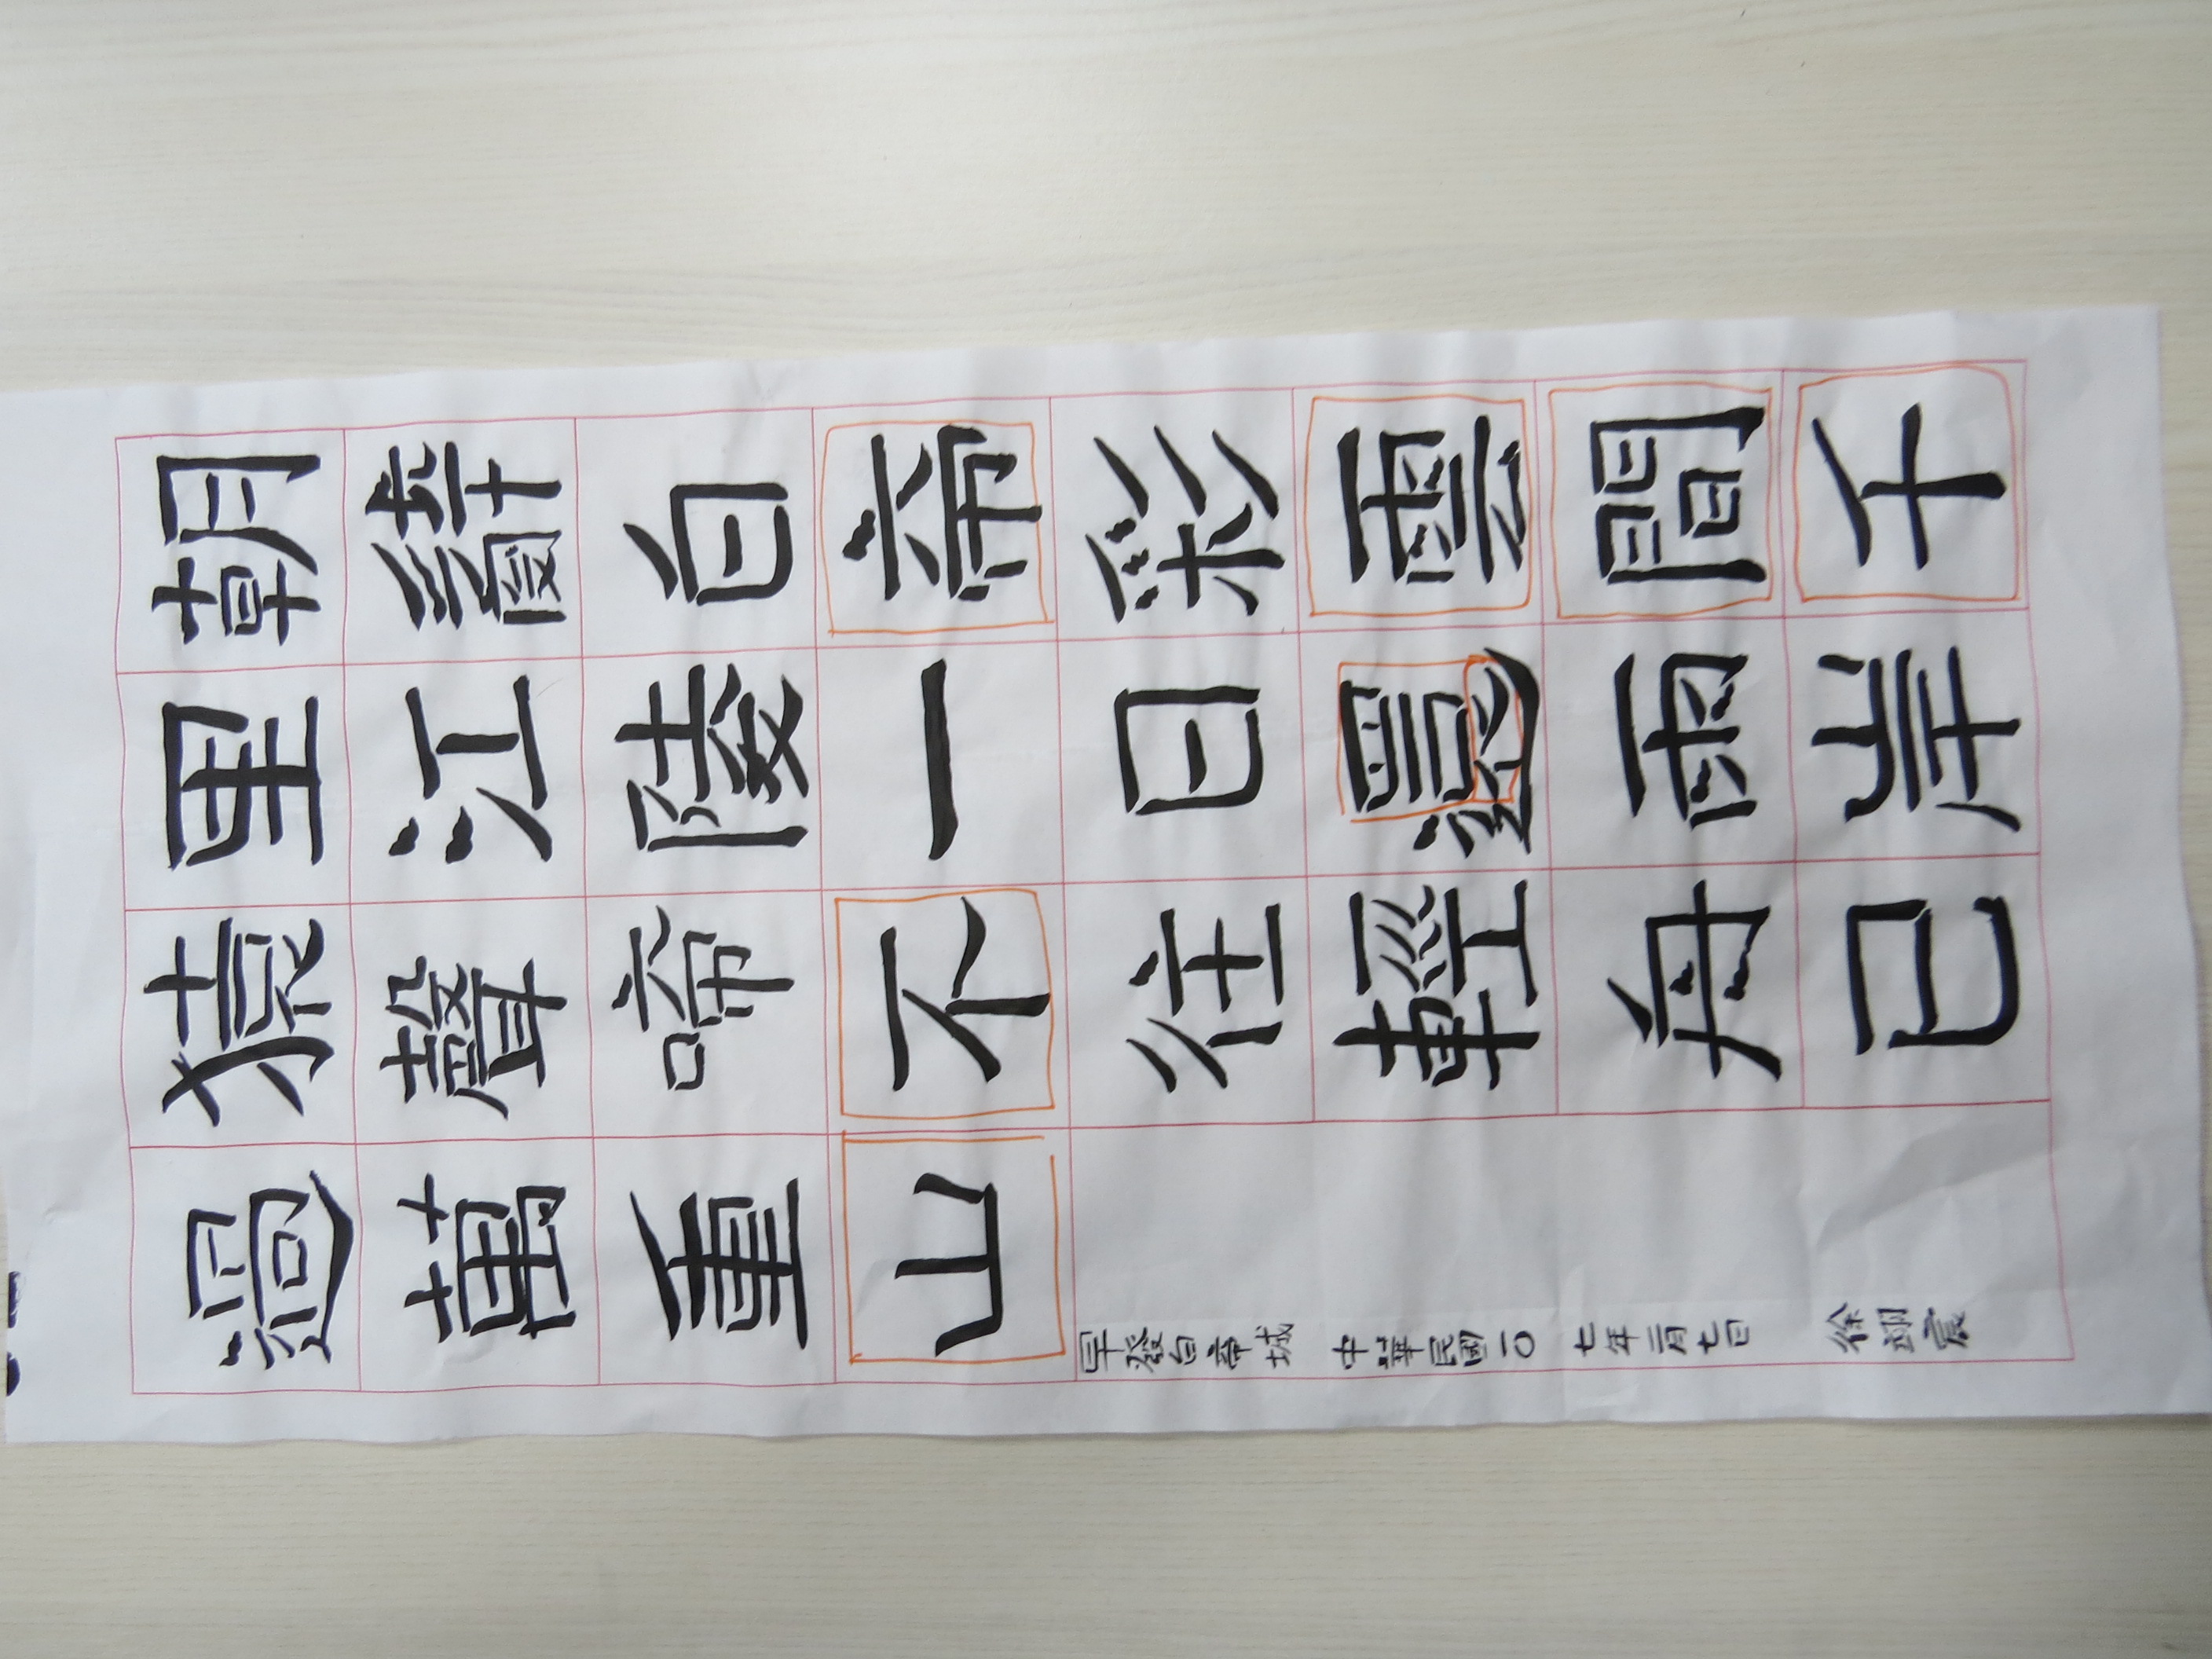 朝辭白帝彩雲間千
里江陵一日還兩岸
猿聲啼不往輕舟已
過萬重山
早發白帝城 中華民國一〇七年二月七日 徐翊宸